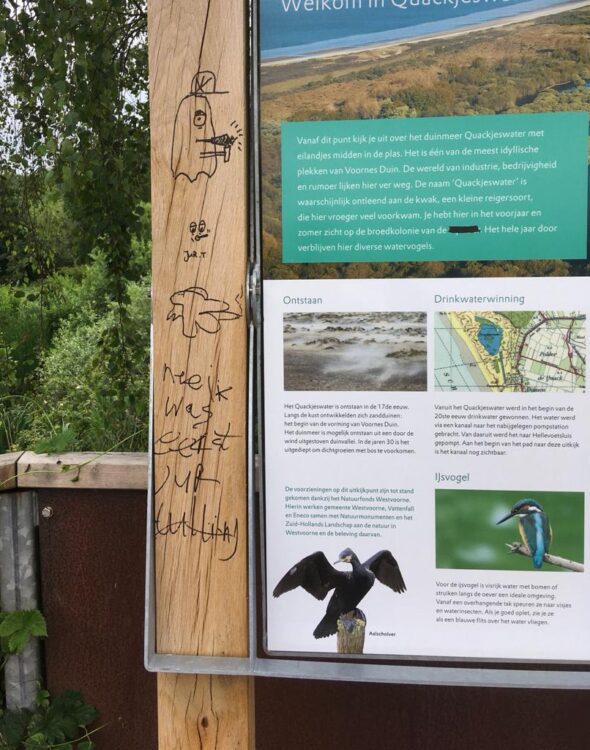 Welkom in Quackjeswa
Vanaf dit punt kijk je uit over het duinmeer Quackjeswater met
eilandjes midden in de plas. Het is één van de meest idyllische
plekken van Voornes Duin. De wereld van industrie, bedrijvigheid
en rumoer lijken hier ver weg. De naam 'Quackjeswater' is
waarschijnlijk ontleend aan de kwak, een kleine reigersoort,
die hier vroeger veel voorkwam. Je hebt hier in het voorjaar en
zomer zicht op de broedkolonie van de . Het hele jaar door
verblijven hier diverse watervogels.
Ontstaan
Het Quackjeswater is ontstaan in de 17de eeuw.
Langs de kust ontwikkelden zich zandduinen:
het begin van de vorming van Voornes Duin.
Het duinmeer is mogelijk ontstaan uit een door de
wind uitgestoven duinvallei. In de jaren 30 is het
uitgediept om dichtgroeien met bos te voorkomen.
De voorzieningen op dit uitkijkpunt zijn tot stand
gekomen dankzij het Natuurfonds Westvoorne.
Hierin werken gemeente Westvoorne, Vattenfall
en Eneco samen met Natuurmonumenten en het
Zuid-Hollands Landschap aan de natuur in
Westvoorne en de beleving daarvan.
Aalscholver
Drinkwaterwinning
Vanuit het Quackjeswater werd in het begin van de
20ste eeuw drinkwater gewonnen. Het water werd
via een kanaal naar het nabijgelegen pompstation
gebracht. Van daaruit werd het naar Hellevoetsluis
gepompt. Aan het begin van het pad naar deze uitkijk
is het kanaal nog zichtbaar.
IJsvogel
Voor de ijsvogel is visrijk water met bomen of
struiken langs de oever een ideale omgeving.
Vanaf een overhangende tak speuren ze naar visjes
en waterinsecten. Als je goed oplet, zie je ze
als een blauwe flits over het water vliegen.
nee ik
was
eerst